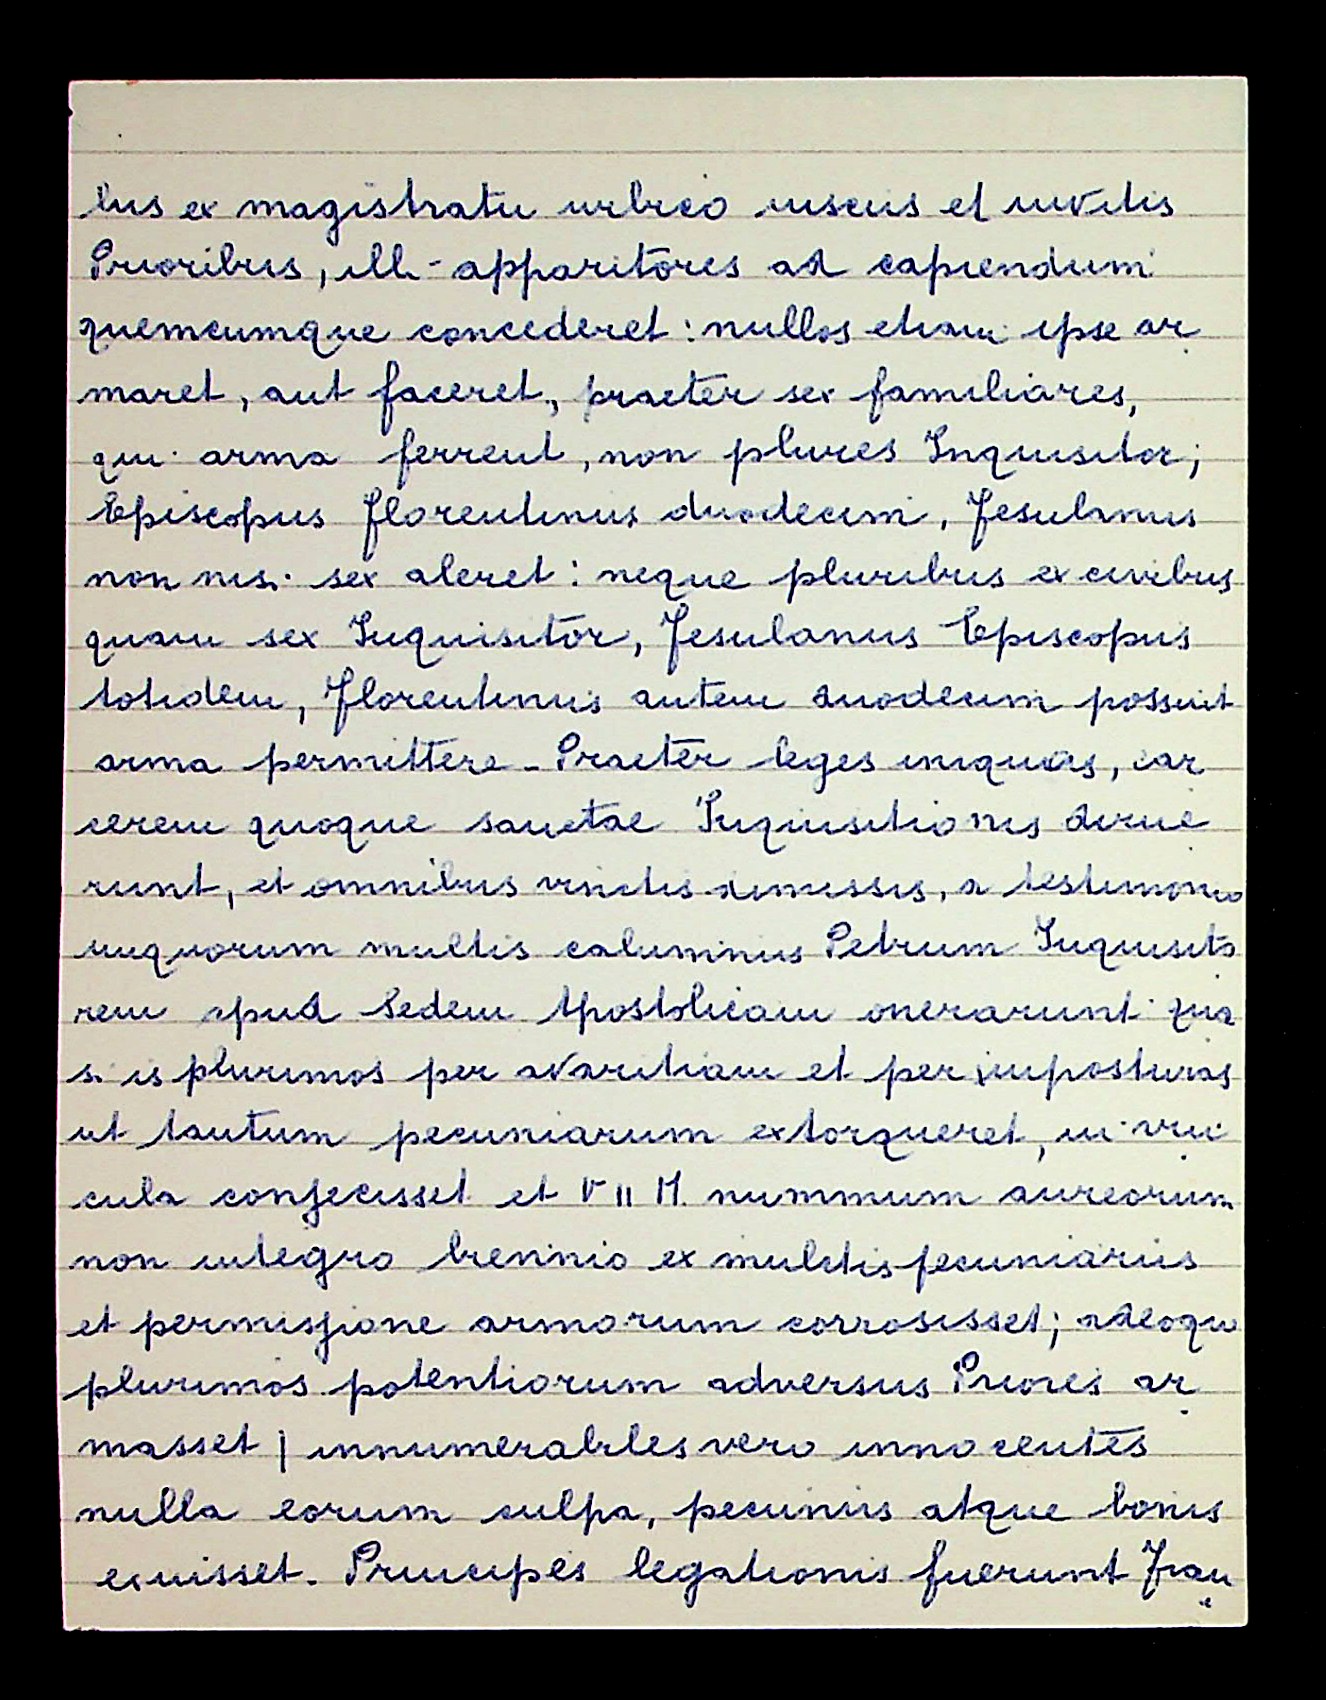 lus ex magistratu urbico insciis et invitis
Prioribus, illi apparitores ad capiendum
quemcumque concederet: nullos etiam ipse ar
maret, aut faceret, praeter sex familiares,
qui arma ferrent, non plures Inquisitor;
Episcopus Florentinus duodecim, Fesulanus
non nisi sex aleret: neque pluribus ex civibus
quam sex Inquisitor, Fesulanus Episcopus
totidem, Florentinus autem duodecim possint
arma permittere - Praeter leges iniquas, car
cerem quoque sanctae Inquisitionis dirue
runt, et omnibus vinctis dimissis, a testimonio
iniquorum multis calumniis Petrum Inquisito
rem apud Sedem Apostolicam onerarunt qua
si is plurimos per avaritiam et per imposturas
ut tantum pecuniarum extorqueret, in vin
cula conjecisset et VII M. nummum aureorum
non integro biennio ex mulctis pecuniariis
et permissione armorum corrosisset; adeoque
plurimos potentiorum adversus Priores ar
masset; innumerabiles vero innocentes
nulla eorum culpa, pecuniis atque bonis
exuisset. Principes legationis fuerunt Fran